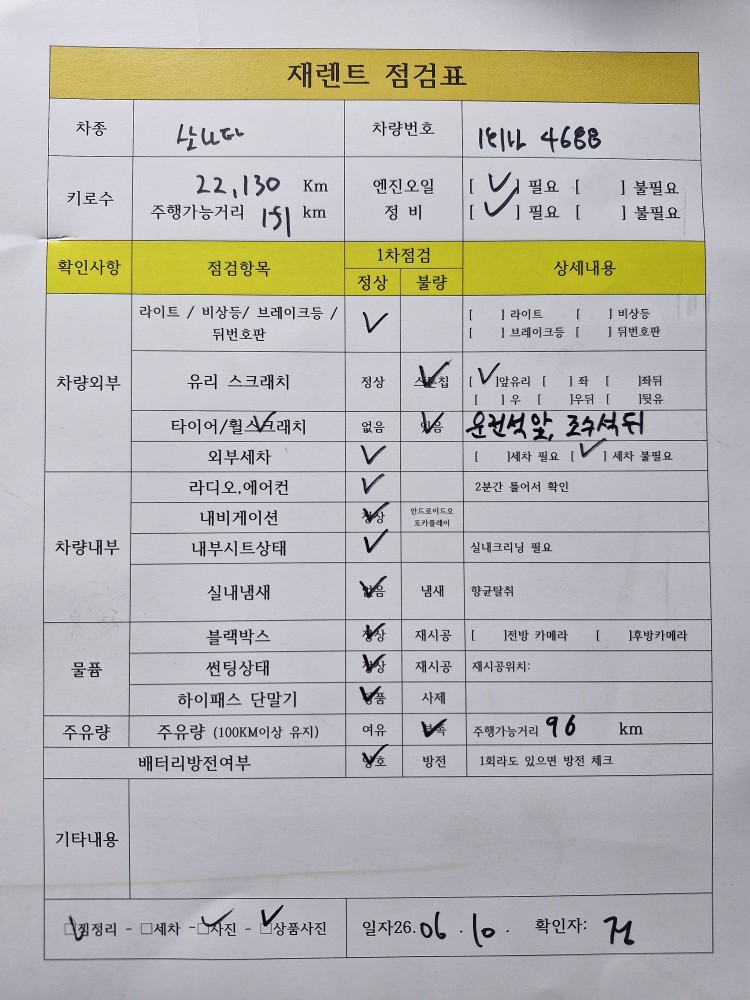 재렌트 점검표
차종 쏘나타 차량번호 4688
키로수 22,130 Km 엔진오일 [ ✓ ] 필요 [ ] 불필요
주행가능거리 km 정 비 [ ✓ ] 필요 [ ] 불필요
확인사항 점검항목 1차점검 상세내용
정상 불량
차량외부 라이트 / 비상등/ 브레이크등 / 뒤번호판 ✓ [ ] 라이트 [ ] 비상등
[ ] 브레이크등 [ ] 뒤번호판
유리 스크래치 정상 스톤칩 ✓ [ ✓ ]앞유리 [ ] 좌 [ ]좌뒤
[ ] 우 [ ]우뒤 [ ]뒷유
타이어/휠스크래치 ✓ 없음 있음 ✓ 운전석앞, 조수석뒤
외부세차 ✓ [ ]세차 필요 [ ✓ ] 세차 불필요
차량내부 라디오,에어컨 ✓ 2분간 틀어서 확인
내비게이션 정상 ✓ 안드로이드오토카플레이
내부시트상태 ✓ 실내크리닝 필요
실내냄새 없음 ✓ 냄새 향균탈취
물품 블랙박스 정상 ✓ 재시공 [ ]전방 카메라 [ ]후방카메라
썬팅상태 정상 ✓ 재시공 재시공위치:
하이패스 단말기 정품 ✓ 사제
주유량 주유량 (100KM이상 유지) 여유 부족 ✓ 주행가능거리 96 km
배터리방전여부 양호 ✓ 방전 1회라도 있으면 방전 체크
기타내용
☑짐정리 - □세차 - ☑사진 - ☑상품사진 일자26. 06 . 10 . 확인자: